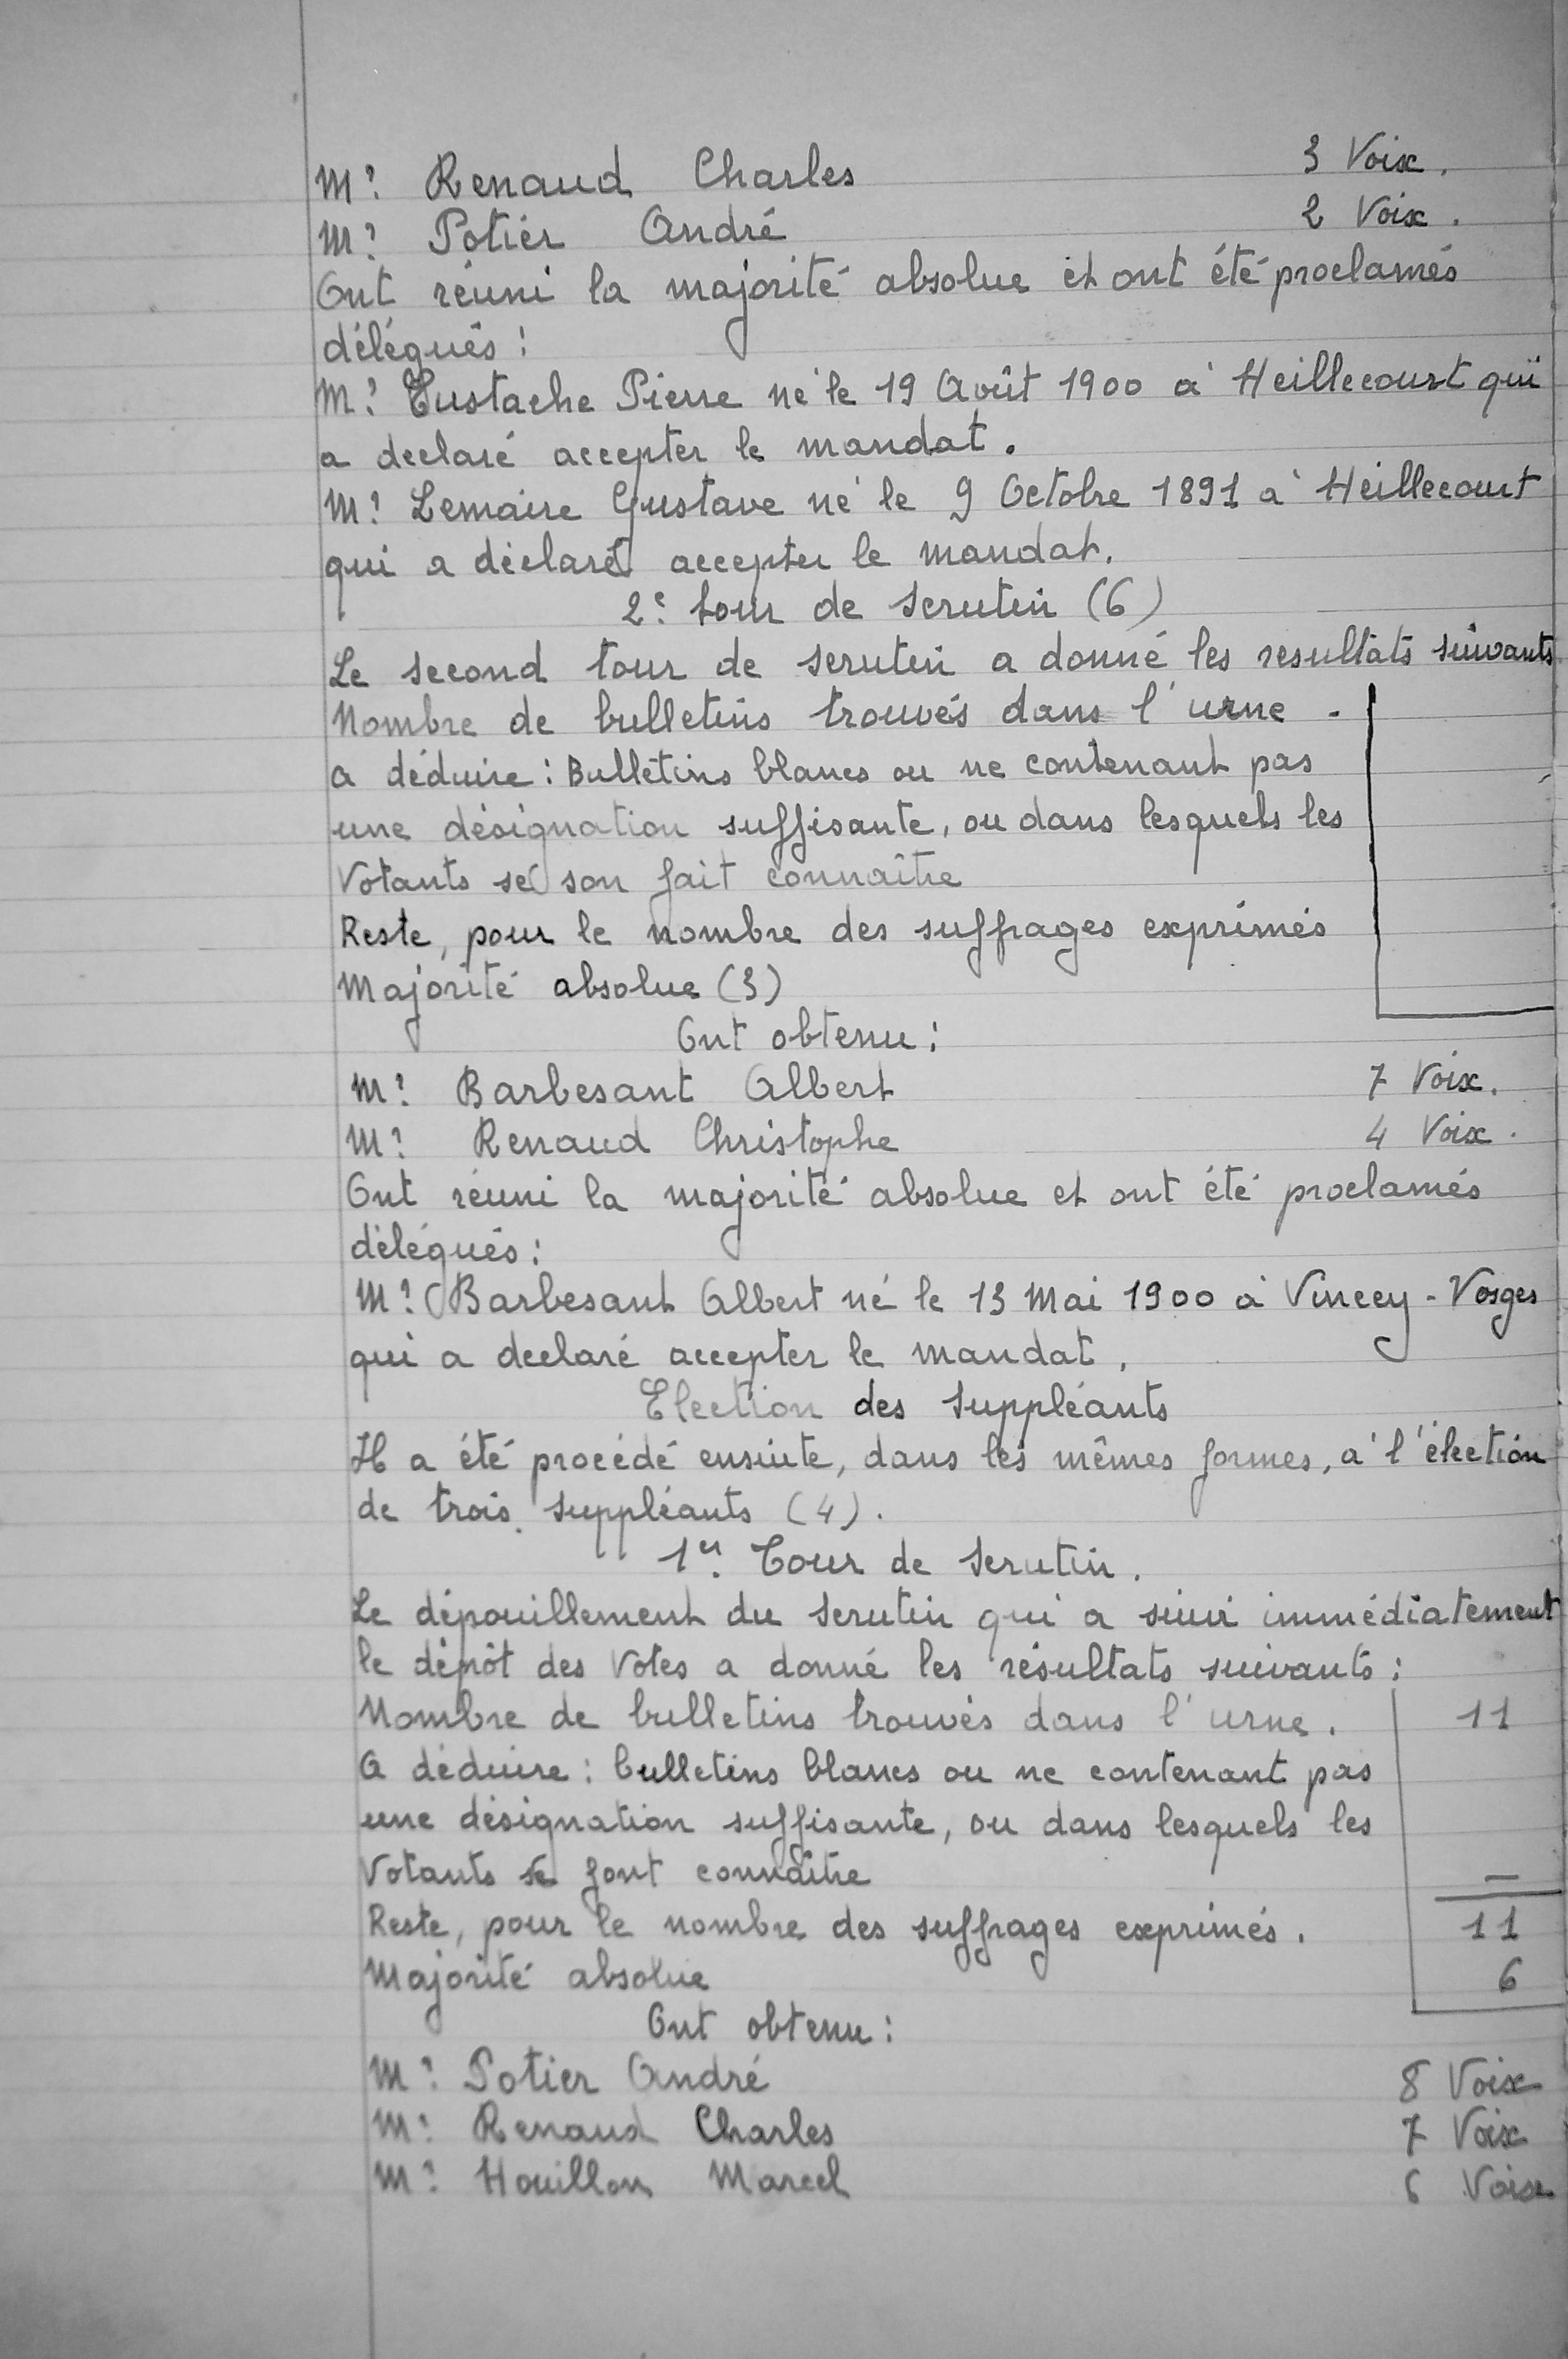 Mr. Renaud Charles 3 Voix.
Mr. Potier André 2 Voix.
Ont réuni la majorité absolue et ont été proclamés
délégués :
Mr. Eustache Pierre né le 19 Août 1900 à Heillecourt qui
a declaré accepter le mandat.
Mr. Lemaire Gustave né le 9 Octobre 1891 à Heillecourt
qui a déclaré accepter le mandat.
2e. tour de scrutin (6)
Le second tour de scrutin a donné les resultats suivants
Nombre de bulletins trouvés dans l'urne -
a déduire : Bulletins blancs ou ne contenant pas
une désignation suffisante, ou dans lesquels les
Votants se son fait connaître
Reste, pour le nombre des suffrages exprimés
Majorité absolue (3)
Ont obtenu :
Mr. Barbesant Albert 7 Voix.
Mr. Renaud Christophe 4 Voix.
Ont réuni la majorité absolue et ont été proclamés
délégués :
Mr. Barbesant Albert né le 13 Mai 1900 à Vincey - Vosges
qui a declaré accepter le mandat.
Election des suppléants
Il a été procédé ensuite, dans les mêmes formes, à l'élection
de trois suppléants (4).
1er. Tour de Scrutin.
Le dépouillement du scrutin qui a suivi immédiatement
le dépôt des Votes a donné les résultats suivants :
Nombre de bulletins trouvés dans l'urne. 11
A déduire : bulletins blancs ou ne contenant pas
une désignation suffisante, ou dans lesquels les
Votants se font connaître —
Reste, pour le nombre des suffrages exprimés. 11
Majorité absolue 6
Ont obtenu :
Mr. Potier André 8 Voix
Mr. Renaud Charles 7 Voix
Mr. Houillon Marcel 6 Voix